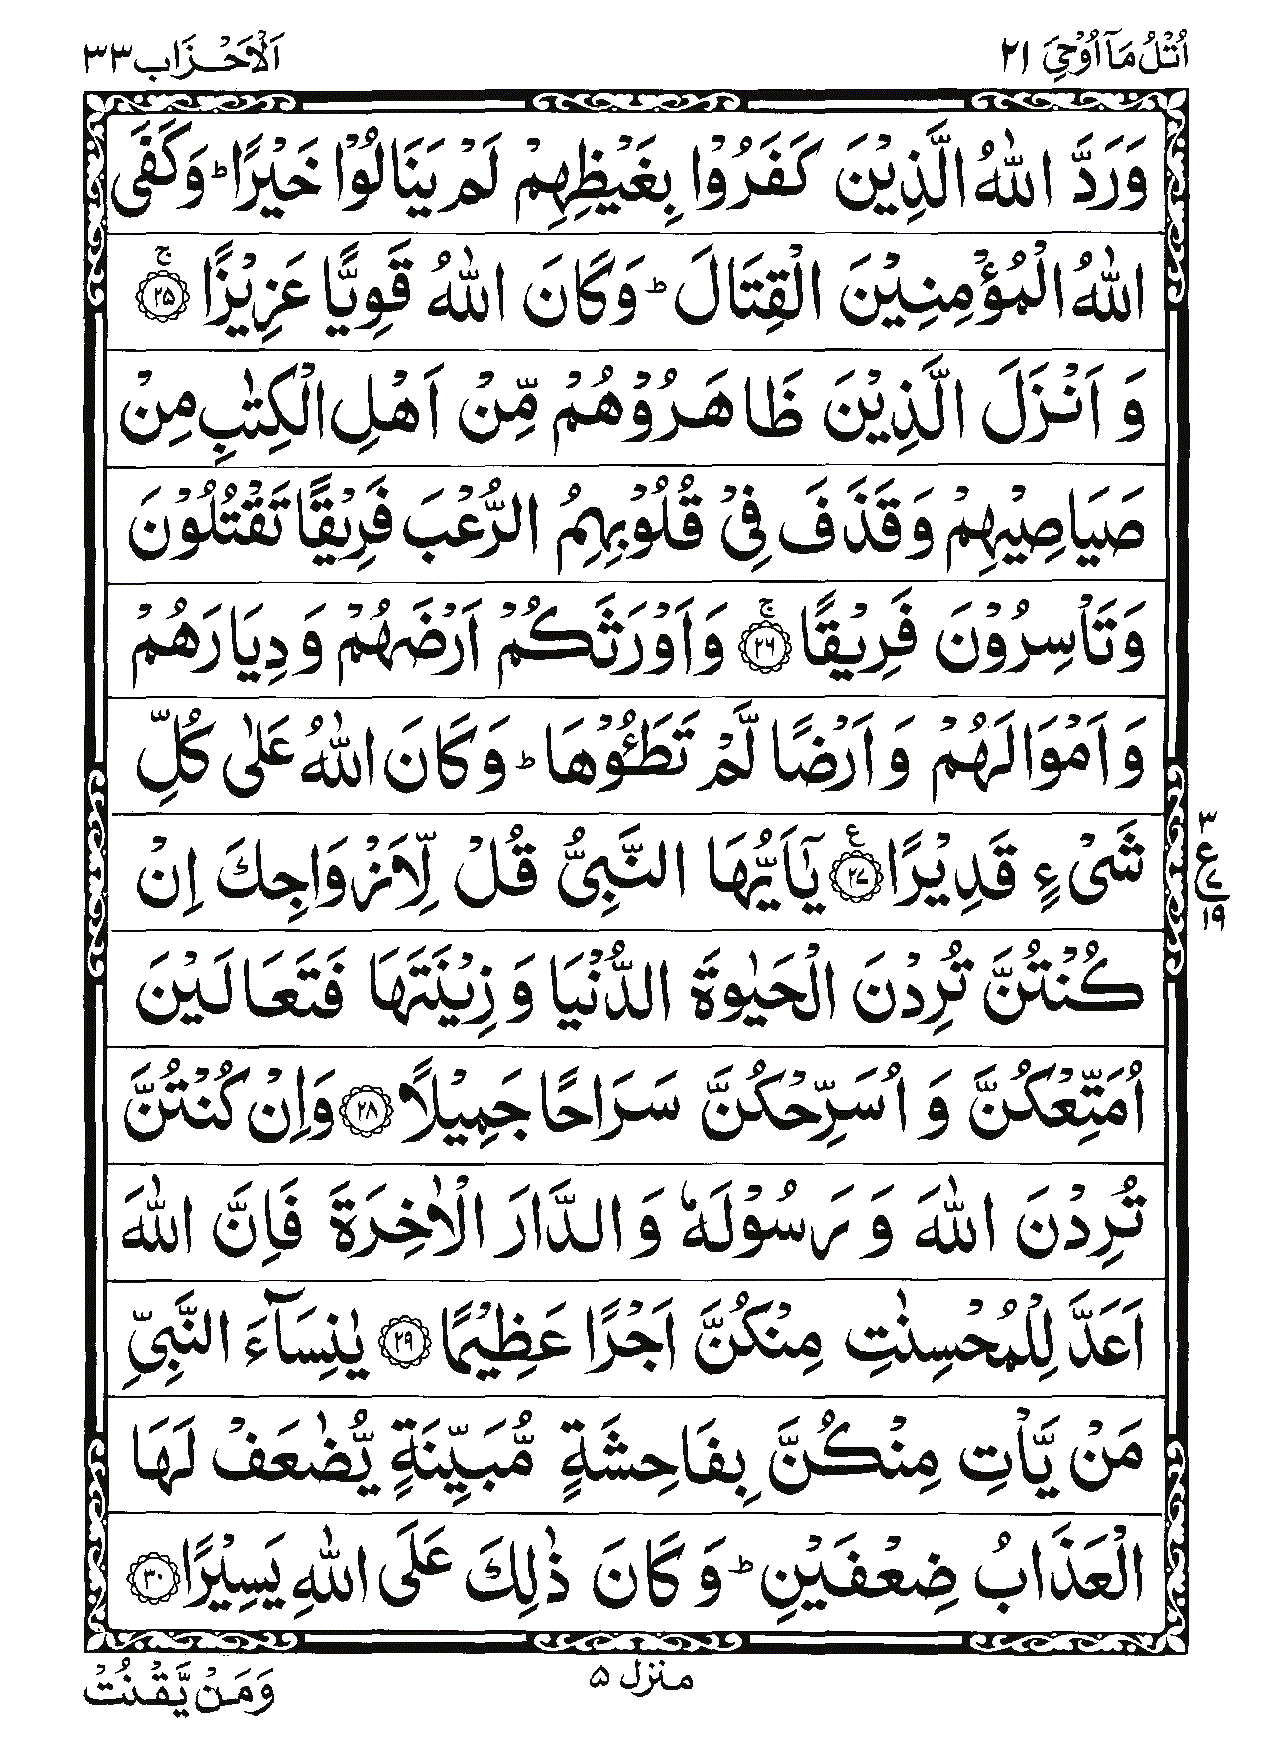 اُتْلُ مَاۤ اُوْحِیَ ۲۱
اَلْاَحْزَاب ۳۳
وَرَدَّ اللّٰهُ الَّذِیْنَ كَفَرُوْا بِغَیْظِهِمْ لَمْ یَنَالُوْا خَیْرًا ؕ وَكَفَی
اللّٰهُ الْمُؤْمِنِیْنَ الْقِتَالَ ؕ وَكَانَ اللّٰهُ قَوِیًّا عَزِیْزًا ۚ ﴿۲۵﴾
وَ اَنْزَلَ الَّذِیْنَ ظَاهَرُوْهُمْ مِّنْ اَهْلِ الْكِتٰبِ مِنْ
صَیَاصِیْهِمْ وَقَذَفَ فِیْ قُلُوْبِهِمُ الرُّعْبَ فَرِیْقًا تَقْتُلُوْنَ
وَتَاْسِرُوْنَ فَرِیْقًا ۚ ﴿۲۶﴾ وَاَوْرَثَكُمْ اَرْضَهُمْ وَ دِیَارَهُمْ
وَاَمْوَالَهُمْ وَ اَرْضًا لَّمْ تَطَـُٔوْهَا ؕ وَكَانَ اللّٰهُ عَلٰی كُلِّ
شَیْءٍ قَدِیْرًا ﴿۲۷﴾ ع یٰۤاَیُّهَا النَّبِیُّ قُلْ لِّاَزْوَاجِكَ اِنْ
۳ ع ۱۹
كُنْتُنَّ تُرِدْنَ الْحَیٰوةَ الدُّنْیَا وَ زِیْنَتَهَا فَتَعَالَیْنَ
اُمَتِّعْكُنَّ وَ اُسَرِّحْكُنَّ سَرَاحًا جَمِیْلًا ﴿۲۸﴾ وَاِنْ كُنْتُنَّ
تُرِدْنَ اللّٰهَ وَ رَسُوْلَهٗ وَ الدَّارَ الْاٰخِرَةَ فَاِنَّ اللّٰهَ
اَعَدَّ لِلْمُحْسِنٰتِ مِنْكُنَّ اَجْرًا عَظِیْمًا ﴿۲۹﴾ یٰنِسَآءَ النَّبِیِّ
مَنْ یَّاْتِ مِنْكُنَّ بِفَاحِشَةٍ مُّبَیِّنَةٍ یُّضٰعَفْ لَهَا
الْعَذَابُ ضِعْفَیْنِ ؕ وَ كَانَ ذٰلِكَ عَلَی اللّٰهِ یَسِیْرًا ﴿۳۰﴾
منزل ۵
وَمَنْ یَّقْنُتْ